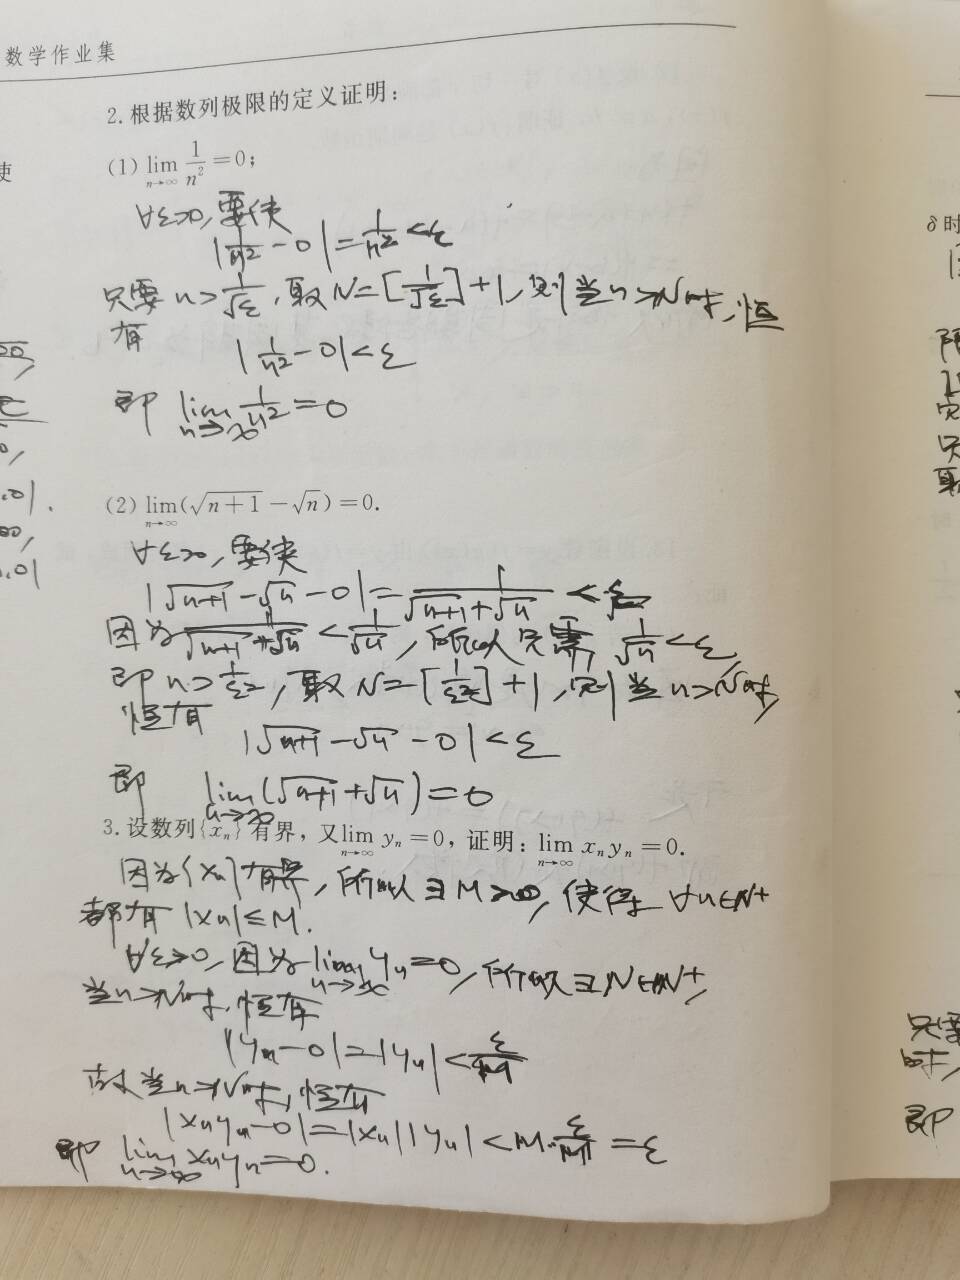 数学作业集
2.根据数列极限的定义证明：
(1) lim_{n→∞} 1/n² = 0;
∀ε>0, 要使
|1/n² - 0| = 1/n² < ε
只要 n > 1/√ε, 取 N = [1/√ε] + 1, 则当 n > N 时, 恒
有
|1/n² - 0| < ε
即 lim_{n→∞} 1/n² = 0
(2) lim_{n→∞} (√(n+1) - √n) = 0.
∀ε>0, 要使
|√(n+1) - √n - 0| = 1/(√(n+1) + √n) < ε
因为 1/(√(n+1) + √n) < 1/√n, 所以只需 1/√n < ε,
即 n > 1/ε², 取 N = [1/ε²] + 1, 则当 n > N 时,
恒有
|√(n+1) - √n - 0| < ε
即 lim_{n→∞} (√(n+1) + √n) = 0
3.设数列{x_n}有界，又 lim_{n→∞} y_n = 0，证明：lim_{n→∞} x_n y_n = 0.
因为{x_n}有界, 所以∃M>0, 使得∀n∈N⁺
都有 |x_n| ≤ M.
∀ε>0, 因为 lim_{n→∞} y_n = 0, 所以∃N∈N⁺,
当 n > N 时, 恒有
|y_n - 0| = |y_n| < ε/M
故当 n > N 时, 恒有
|x_n y_n - 0| = |x_n||y_n| < M·ε/M = ε
即 lim_{n→∞} x_n y_n = 0.
使
δ时
即